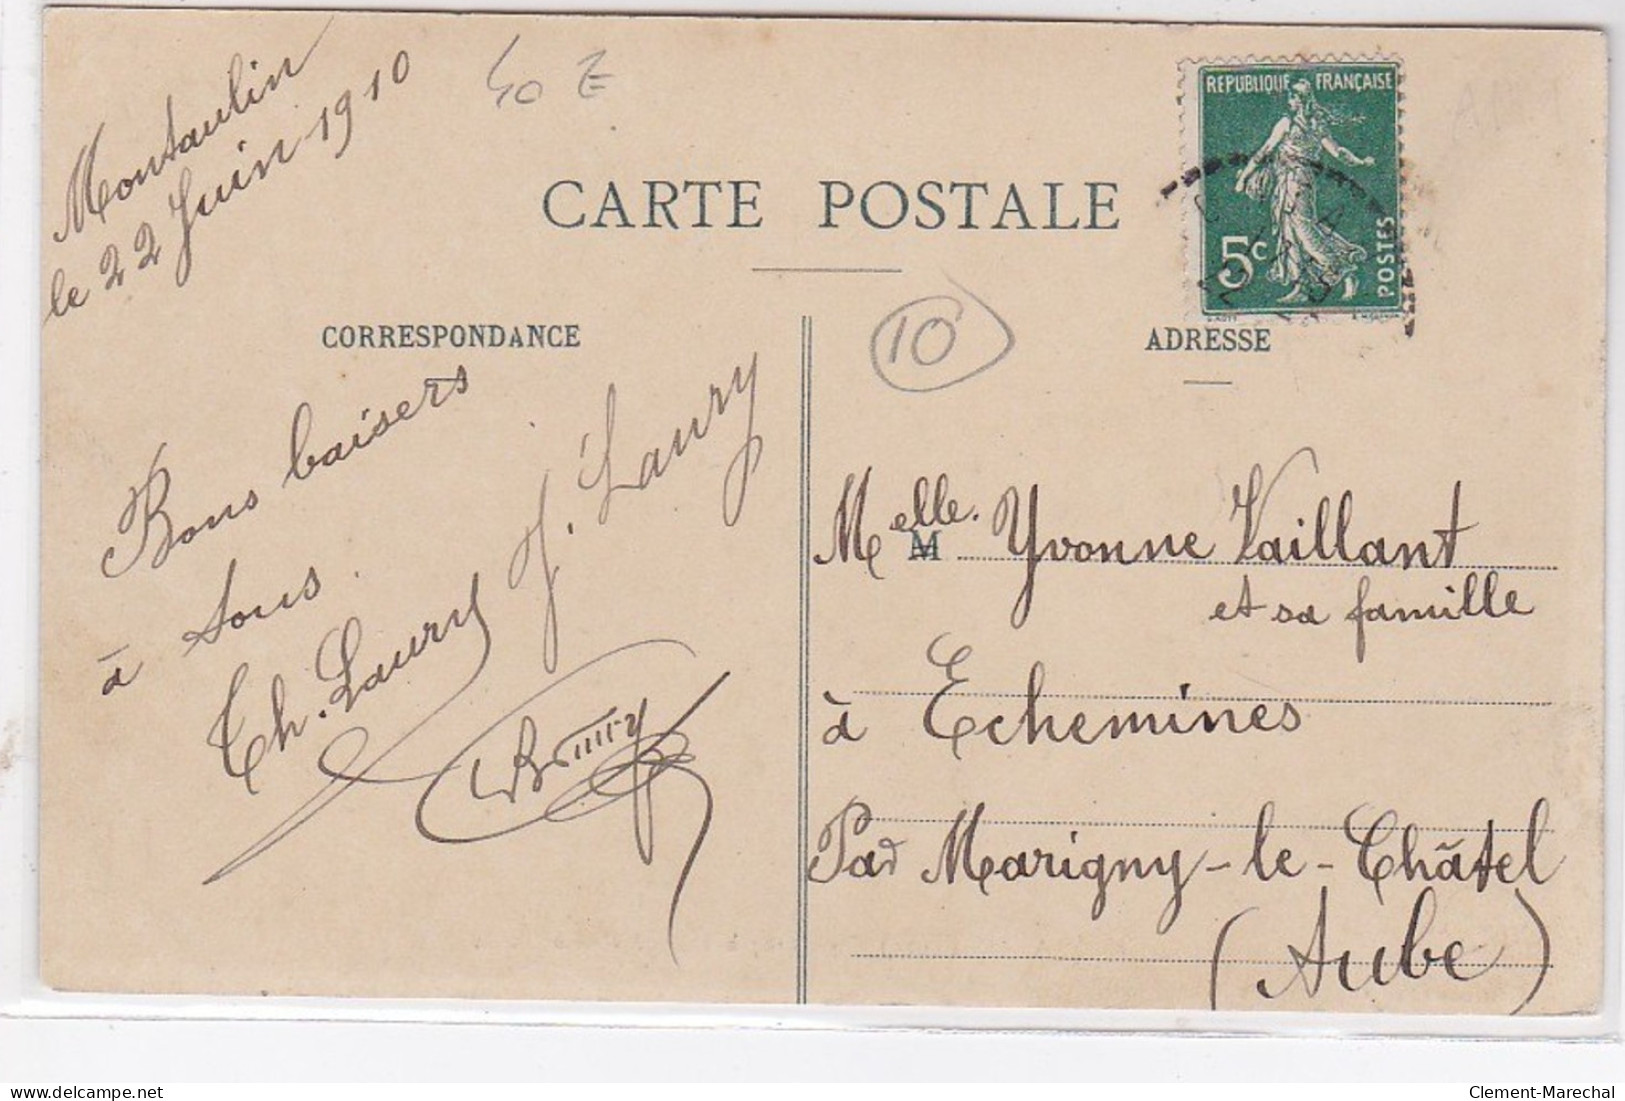 Montaulin
le 22 Juin 1910
40 E
CARTE POSTALE
REPUBLIQUE FRANÇAISE
5c
POSTES
CORRESPONDANCE
10
ADRESSE
Bons baisers
à tous.
Th. Laury J. Laury
Melle. M Yvonne Vaillant
et sa famille
à Echemines
Par Marigny-le-Châtel
(Aube)
delcampe.net
Clement-Marechal